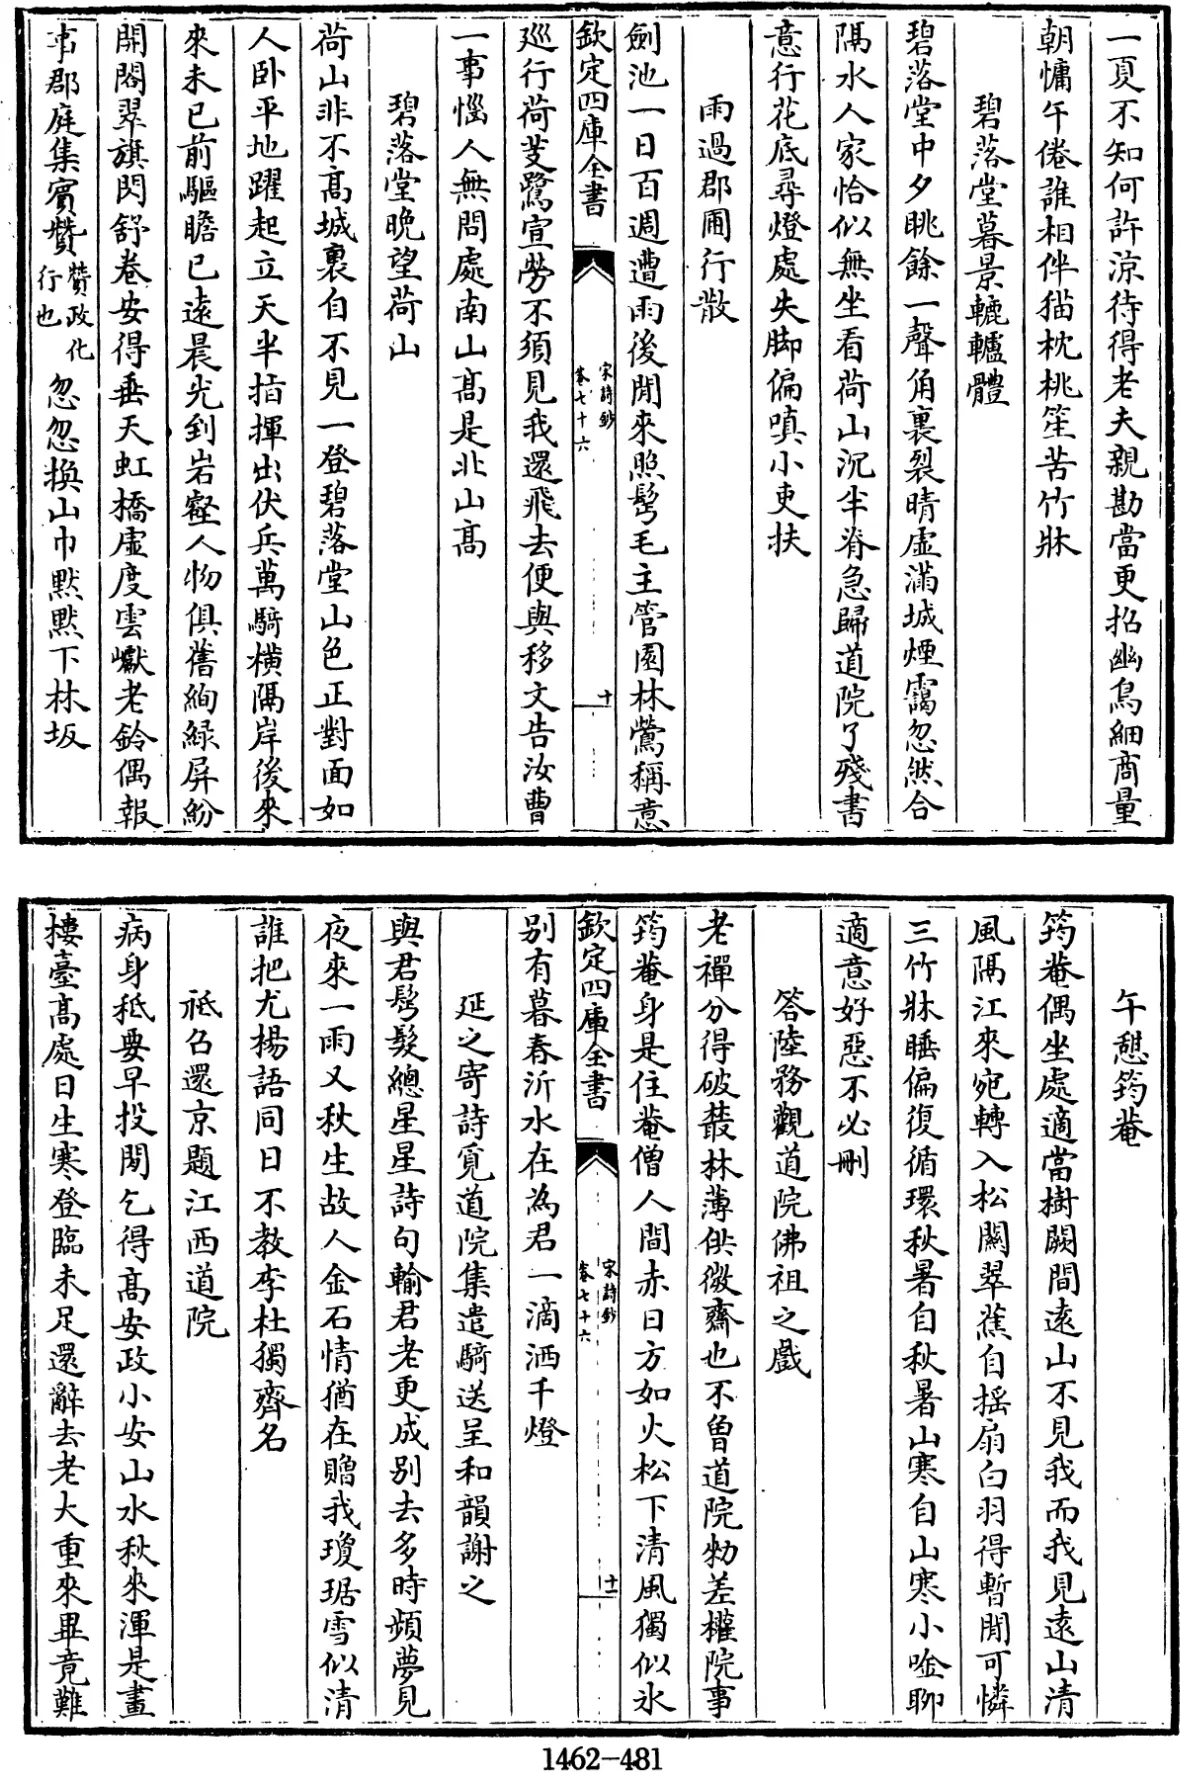 一夏不知何許涼待得老夫親勘當更招幽鳥細商量
朝慵午倦誰相伴猫枕桃笙苦竹牀
碧落堂暮景轆轤體
碧落堂中夕眺餘一聲角裏裂晴虚滿城煙靄忽然合
隔水人家恰似無坐看荷山沉半脊急歸道院了殘書
意行花底尋燈處失脚偏嗔小吏扶
雨過郡圃行散
劍池一日百週遭雨後閒來照鬢毛主管園林鶯稱意
欽定四庫全書
宋詩鈔
卷七十六
十
廵行荷芰鷺宣勞不須見我還飛去便與移文告汝曹
一事惱人無問處南山髙是北山髙
碧落堂晩望荷山
荷山非不髙城裏自不見一登碧落堂山色正對面如
人卧平地躍起立天半指揮出伏兵萬騎横隔岸後來
來未已前驅瞻已逺晨光到岩壑人物俱舊絢緑屏紛
開閤翠旗閃舒卷安得垂天虹橋虚度雲巘老鈴偶報
事郡庭集賓贊
贊政化
行也
忽忽換山巾黙黙下林坂
午憩筠菴
筠菴偶坐處適當樹闕間逺山不見我而我見逺山清
風隔江來宛轉入松闗翠蕉自摇扇白羽得暫閒可憐
三竹牀睡偏復循環秋暑自秋暑山寒自山寒小唫聊
適意好惡不必刪
答陸務觀道院佛祖之戲
老禪分得破叢林薄供微齋也不曽道院勑差權院事
筠菴身是住菴僧人間赤日方如火松下清風獨似氷
欽定四庫全書
宋詩鈔
卷七十六
十一
别有暮春沂水在為君一滴洒千燈
延之寄詩覓道院集遣騎送呈和韻謝之
與君鬢髮總星星詩句輸君老更成别去多時頻夢見
夜來一雨又秋生故人金石情猶在贈我瓊琚雪似清
誰把尤楊語同日不教李杜獨齊名
祗召還京題江西道院
病身秪要早投閒乞得髙安政小安山水秋來渾是畫
樓臺髙處日生寒登臨未足還辭去老大重來畢竟難
1462-481